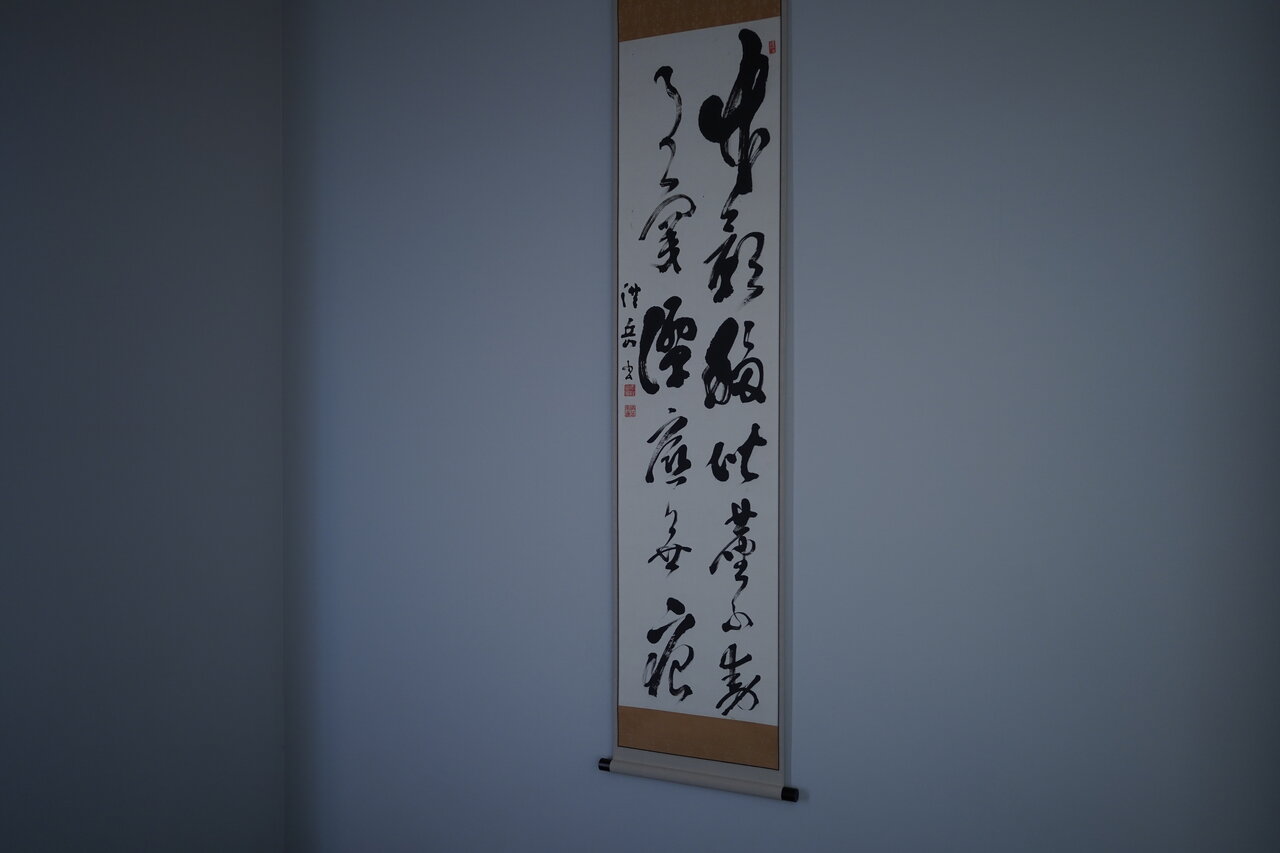 竹影掃階塵不動
月穿潭底水無痕
岳書